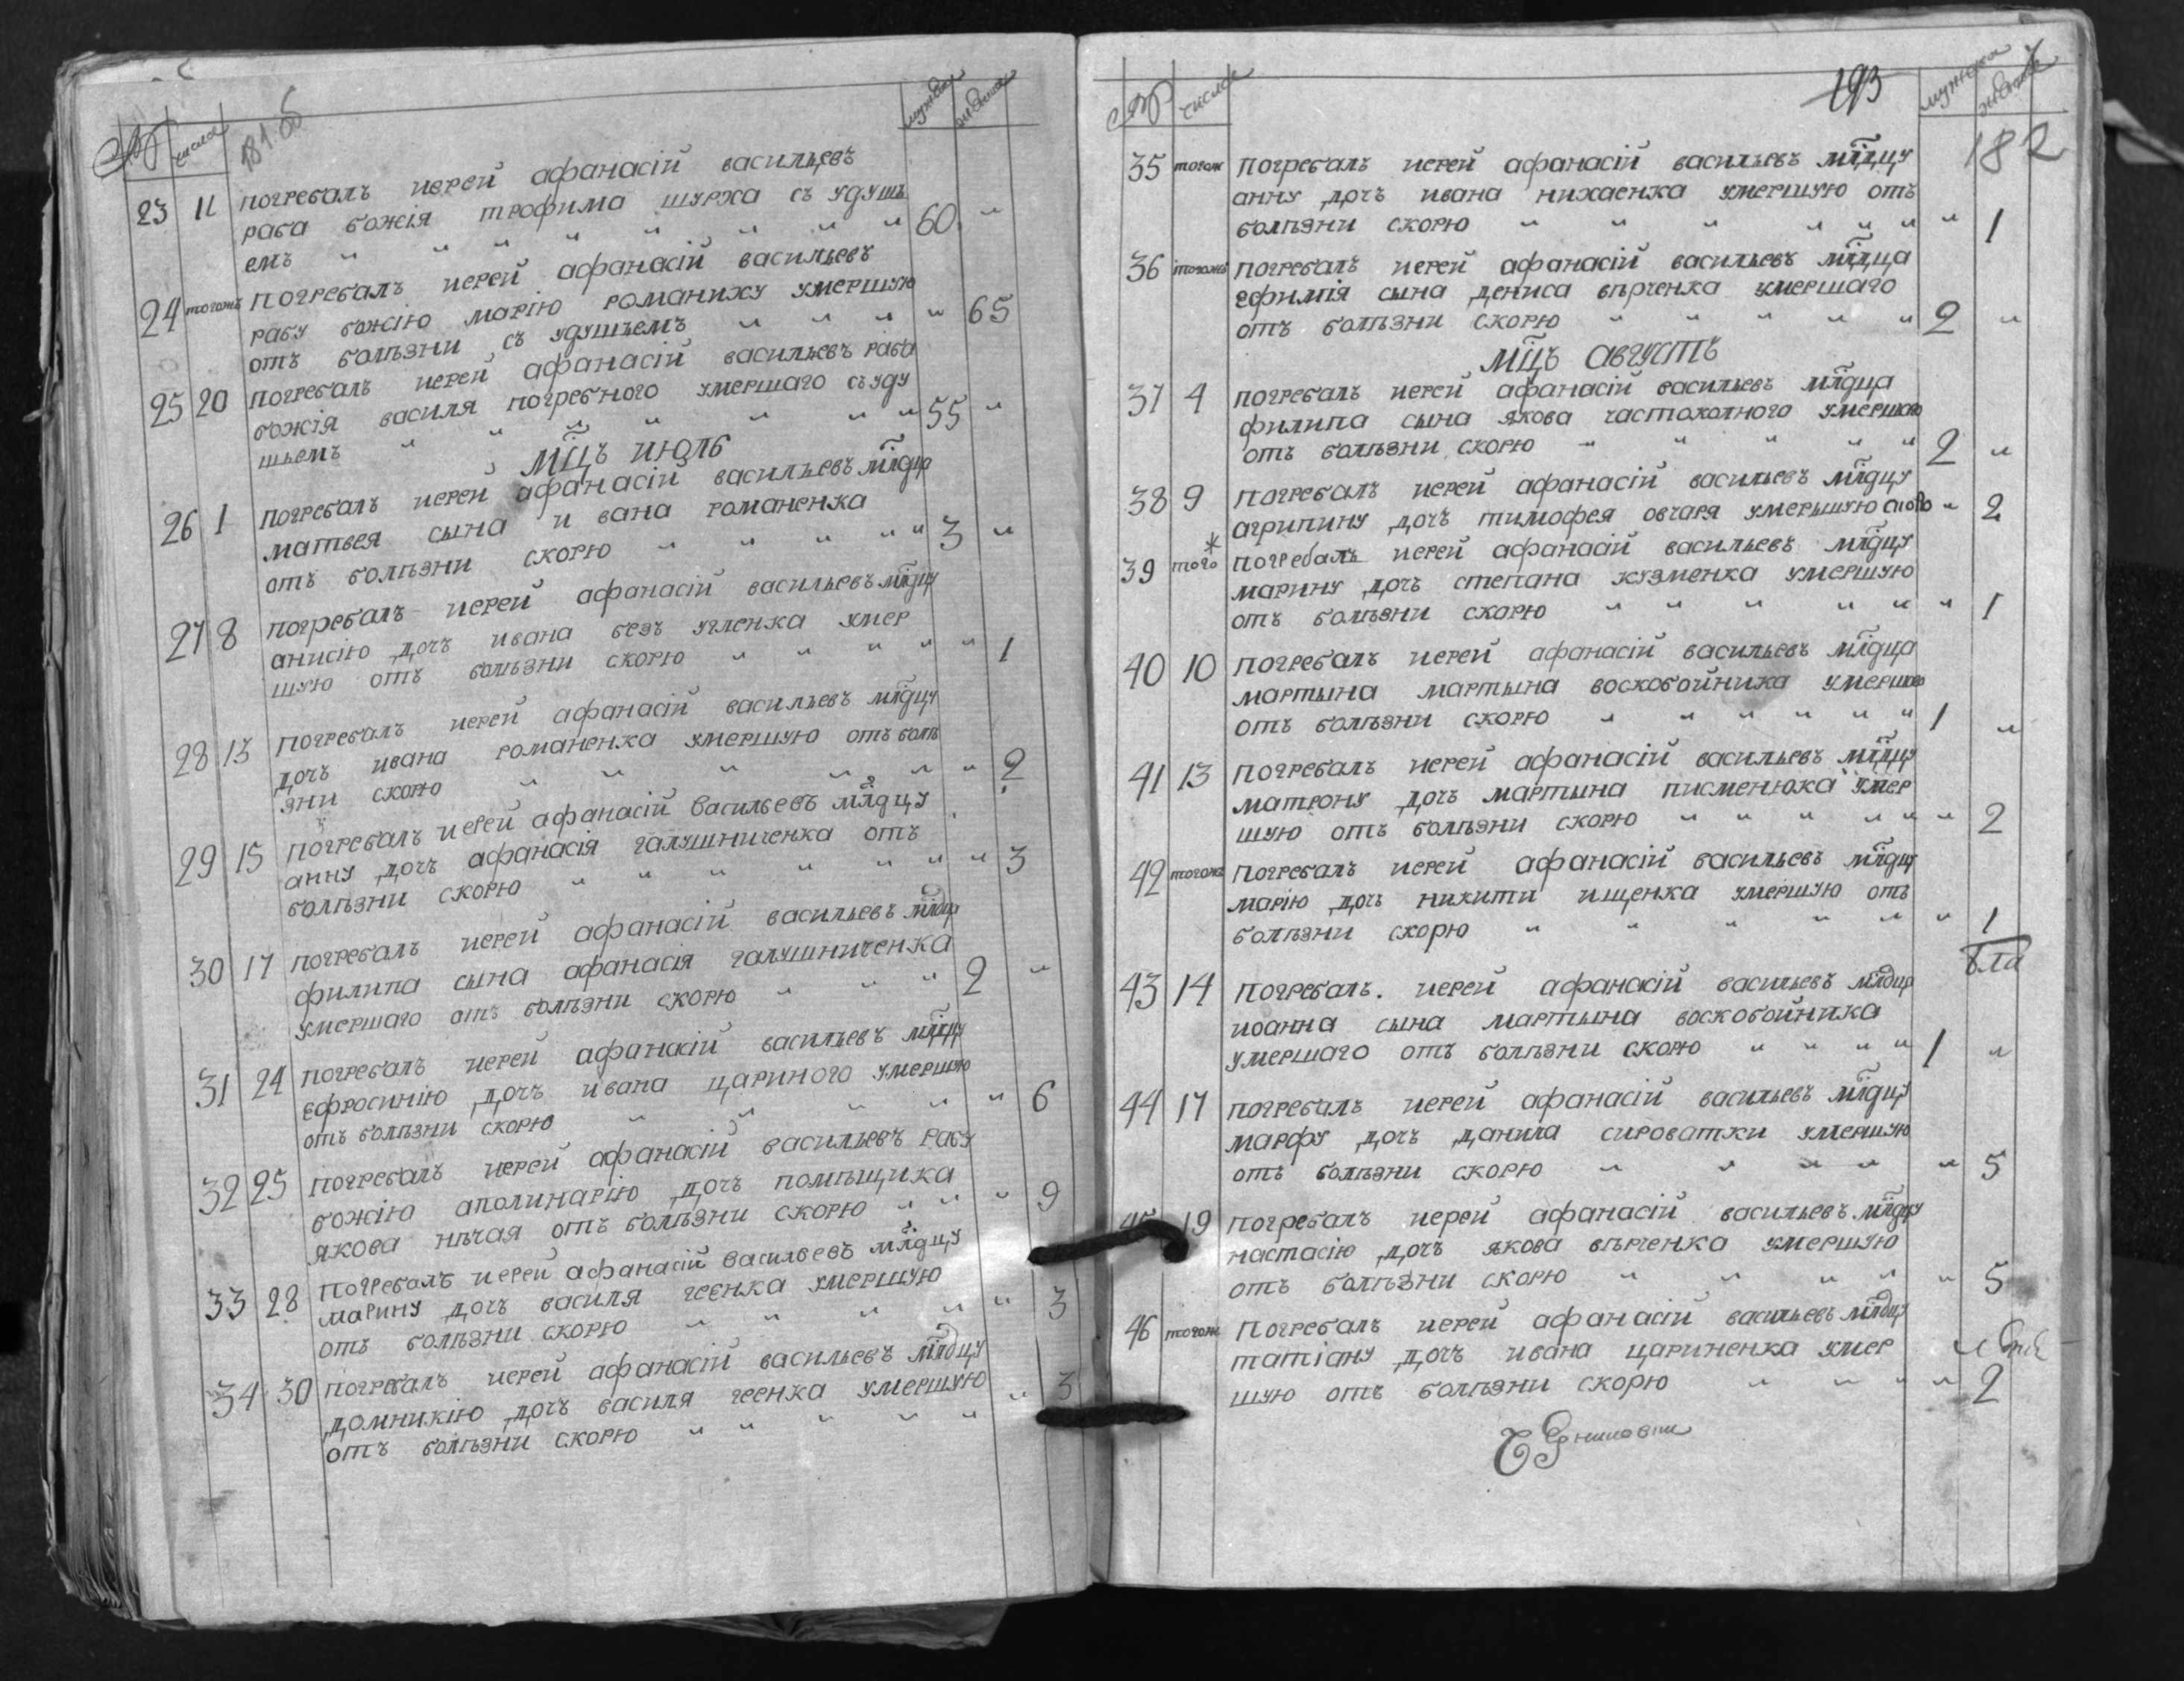 № числа 181 об мужеска женска
23 11 погребалъ иерей афанасій васильевъ
раба божія трофима шурха съ удушь
емъ 60 "
24 тогожъ погребалъ иерей афанасій васильевъ
рабу божію марію романиху умершую
отъ болѣзни съ удушьемъ " 65
25 20 погребалъ иерей афанасій васильевъ раба
божія василя погребного умершаго съ уду
шьемъ 55 "
мц̃ъ июль
26 1 погребалъ иерей афанасій васильевъ млдца
матвея сына и вана романенка
отъ болѣзни скорю 3 "
27 8 погребалъ иерей афанасій васильевъ млдцу
анисію дочъ ивана безъ угленка умер
шую отъ болѣзни скорю " 1
28 13 погребалъ иерей афанасій васильевъ млдцу
дочъ ивана романенка умершую отъ болѣ
зни скорю " 2
29 15 погребалъ иерей афанасій васильевъ млдцу
анну дочъ афанасія галушниченка отъ
болѣзни скорю " 3
30 17 погребалъ иерей афанасій васильевъ млдца
филипа сына афанасія галушниченка
умершаго отъ болѣзни скорю 2 "
31 24 погребалъ иерей афанасій васильевъ млдцу
ефросинію дочъ ивана цариного умершую
отъ болѣзни скорю " 6
32 25 погребалъ иерей афанасій васильевъ рабу
божію аполинарію дочъ помѣщика
якова нѣчая отъ болѣзни скорю " 9
33 28 погребалъ иерей афанасій васильевъ млдцу
марину дочъ василя геенка умершую
отъ болѣзни скорю " 3
34 30 погребалъ иерей афанасій васильевъ млдцу
домникію дочъ василя геенка умершую
отъ болѣзни скорю " 3
№ числа 193 мужеска женска
182
35 тогож погребалъ иерей афанасій васильевъ млдцу
анну дочъ ивана нихаенка умершую отъ
болѣзни скорю " 1
36 тогожъ погребалъ иерей афанасій васильевъ млдца
ефимія сына дениса вѣрченка умершаго
отъ болѣзни скорю 2 "
мц̃ъ августъ
37 4 погребалъ иерей афанасій васильевъ млдца
филипа сына якова частоколного умершаго
отъ болѣзни скорю 2 "
38 9 погребалъ иерей афанасій васильевъ млдцу
агрипину дочъ тимофея овчаря умершую " 2
39 того * погребалъ иерей афанасій васильевъ млдцу
марину дочъ степана кузменка умершую
отъ болѣзни скорю " 1
40 10 погребалъ иерей афанасій васильевъ млдца
мартына мартына воскобойника умершаго
отъ болѣзни скорю 1 "
41 13 погребалъ иерей афанасій васильевъ млдцу
матрону дочъ мартына писменюка умер
шую отъ болѣзни скорю " 2
42 тогожъ погребалъ иерей афанасій васильевъ млдцу
марію дочъ никити ищенка умершую отъ
болѣзни скорю " 1
43 14 погребалъ. иерей афанасій васильевъ млдца
иоанна сына мартына воскобойника
умершаго отъ болѣзни скорю 1 "
44 17 погребалъ иерей афанасій васильевъ млдцу
марфу дочъ данила сироватки умершую
отъ болѣзни скорю " 5
45 19 погребалъ иерей афанасій васильевъ млдцу
настасію дочъ якова вѣрченка умершую
отъ болѣзни скорю " 5
46 тогож погребалъ иерей афанасій васильевъ млдцу
татіану дочъ ивана цариненка умер
шую отъ болѣзни скорю " 2